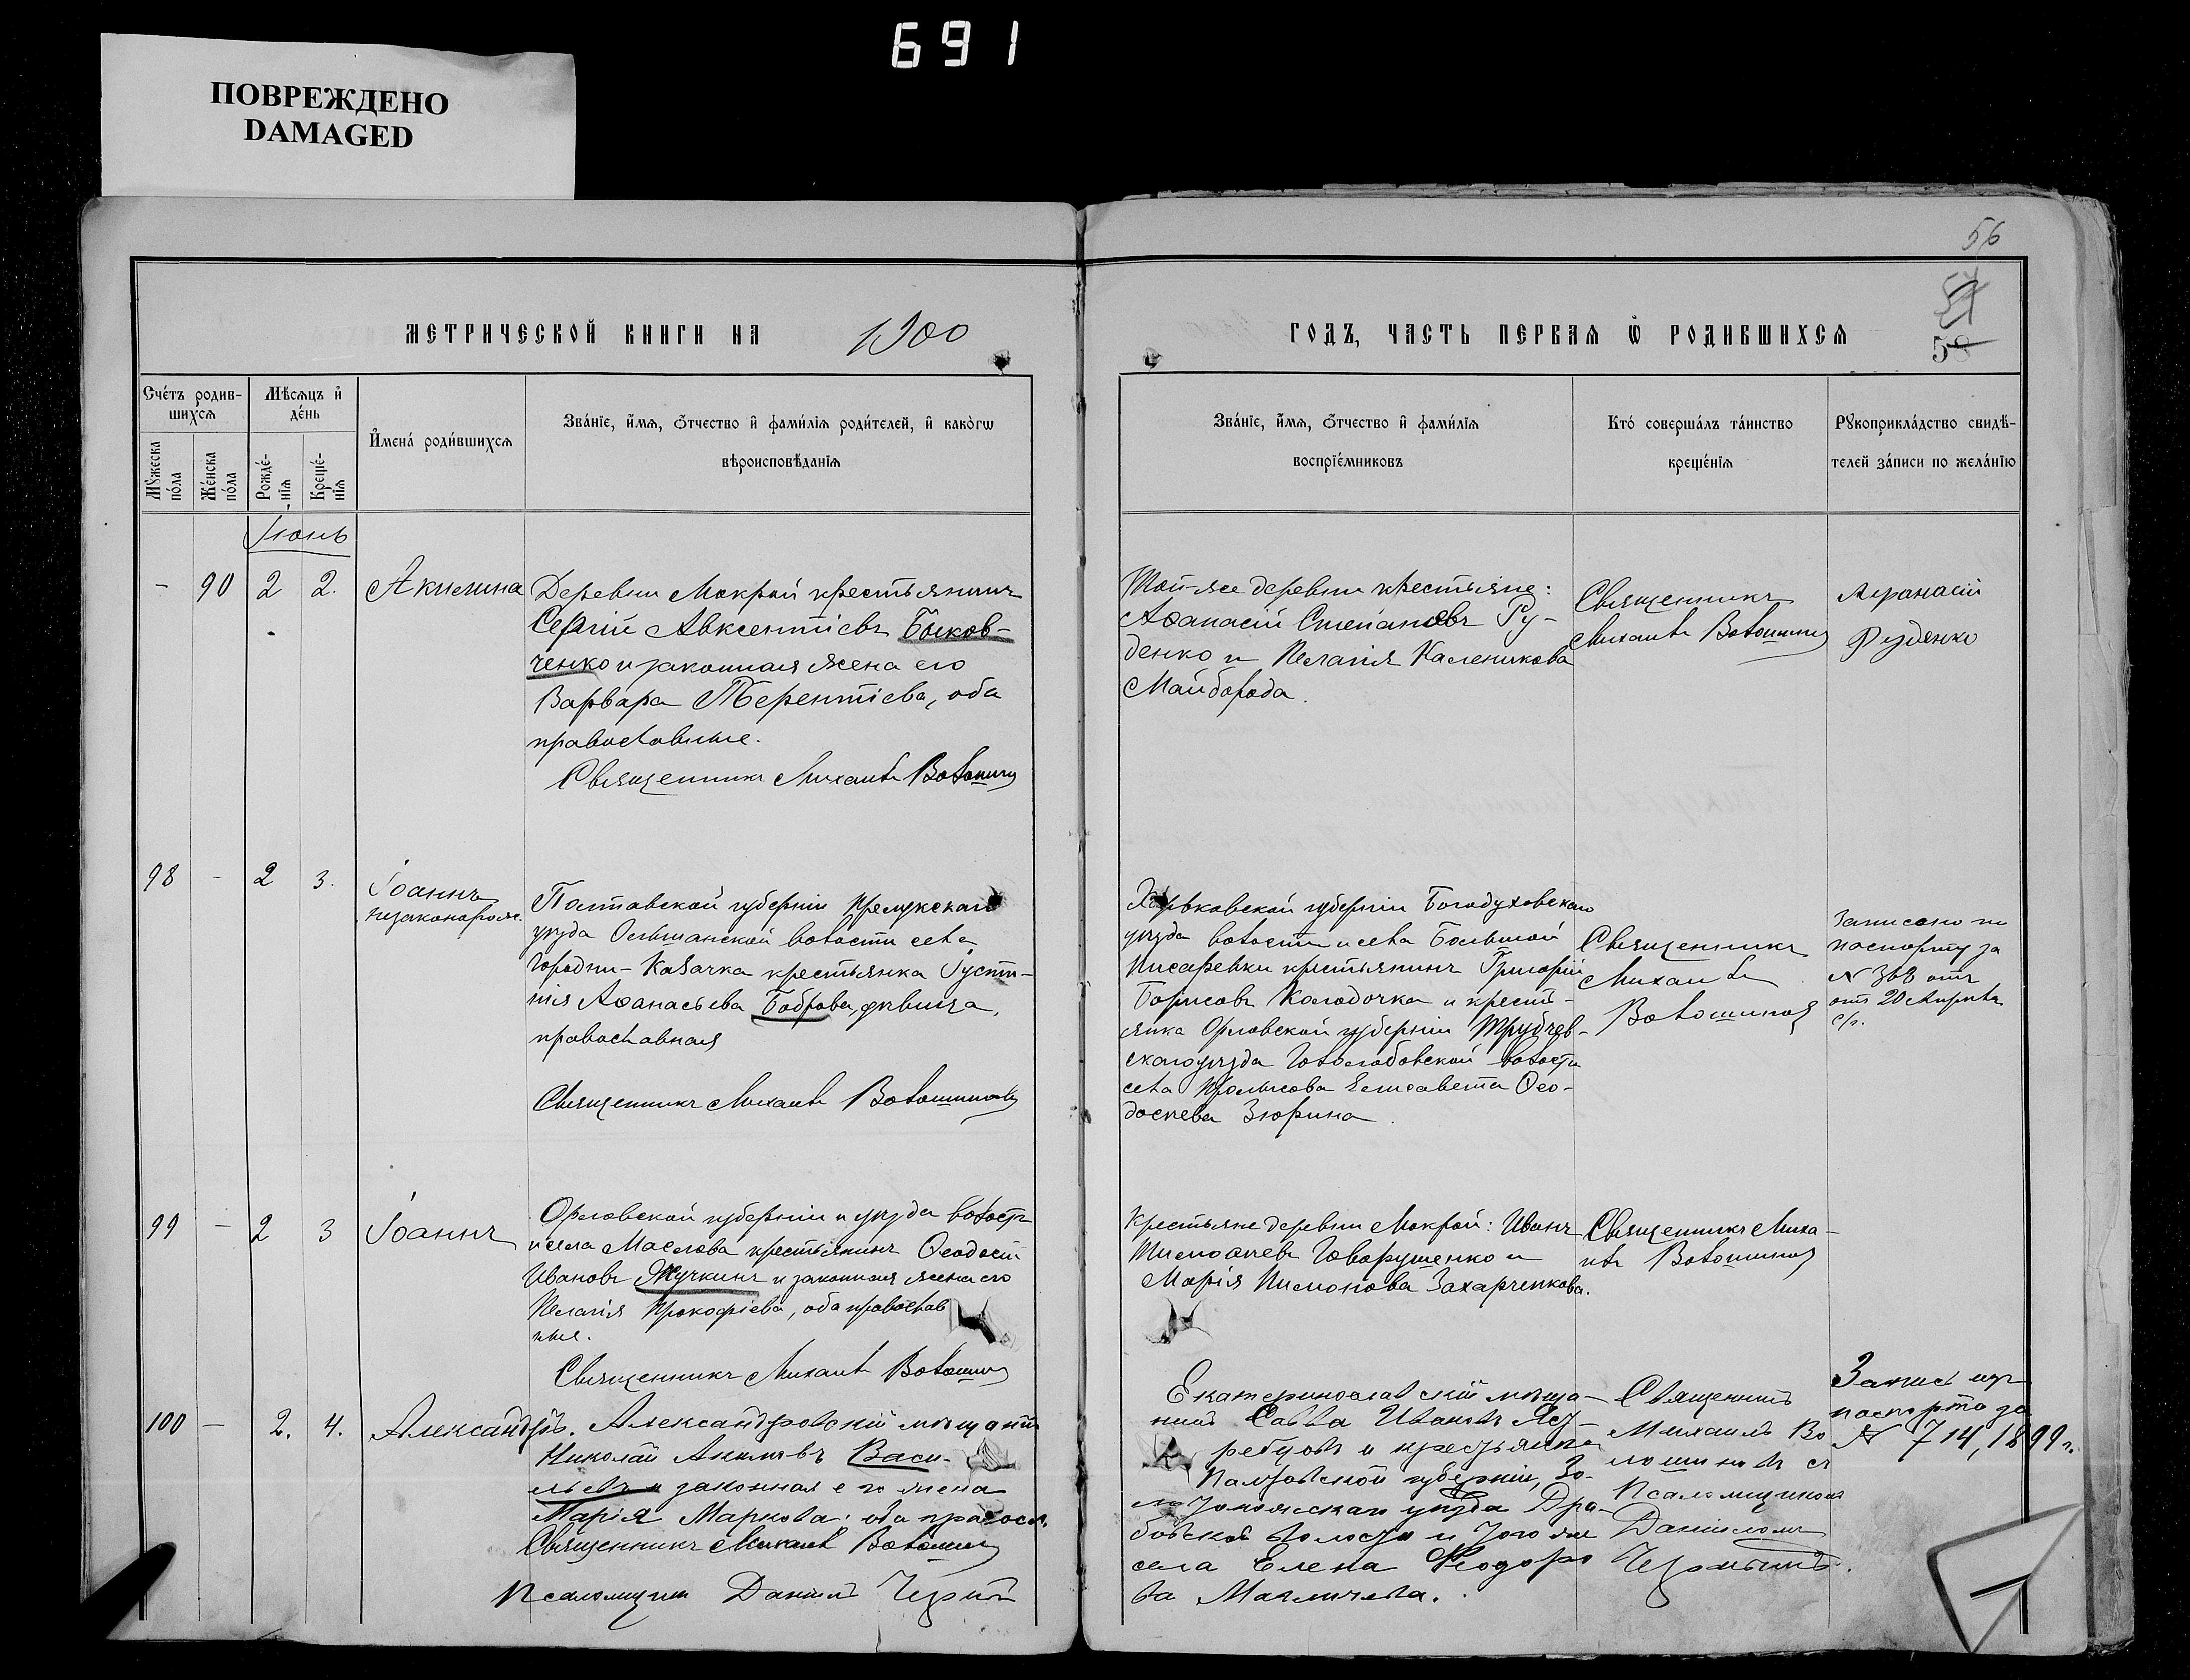 691
ПОВРЕЖДЕНО
DAMAGED
56
МЕТРИЧЕСКОЙ КНИГИ НА 1900
ГОДЪ, ЧАСТЬ ПЕРВАЯ Ѿ РОДИВШИХСЯ
Счетъ родив-
шихся
Мужеска пола
Женска пола
Мѣсяцъ и
день
Рожде-
нія
Креще-
нія
Имена родившихся
Званіе, имя, отчество и фамилія родителей, и какогѡ
вѣроисповѣданія
Званіе, имя, отчество и фамилія
воспріемниковъ
Кто совершалъ таинство
крещенія
Рукоприкладство свидѣ-
телей записи по желанію
Іюнь
- 90 2 2. Акилина
Деревни Мокрой крестьянинъ
Сергій Авксентіевъ Быков-
ченко и законная жена его
Варвара Терентіева, оба
православные.
Священникъ Михаилъ Волошинъ
Той-же деревни крестьяне:
Аѳанасій Степановъ Ру-
денко и Пелагія Каленикова
Майборода.
Священникъ
Михаилъ Волошиновъ
Афанасій
Руденко
98 - 2 3. Іоаннъ
незаконорож.
Полтавской губерніи Прилукскаго
уѣзда Ольшанской волости села
Городни-Казачка крестьянка Густи-
нія Аѳанасьева Боброва, дѣвица,
православная
Священникъ Михаилъ Волошиновъ
Харьковской губерніи Богодуховскаго
уѣзда волости и села Большой
Писаревки крестьянинъ Григорій
Борисовъ Колодочка и кресть-
янка Орловской губерніи Трубчев-
скаго уѣзда волости
села Елисавета Ѳео-
досіева Зюрина.
Священникъ
Михаилъ
Волошиновъ
Записано по
паспорту за
№ отъ
отъ 20 Апрѣля
с/г.
99 - 2 3 Іоаннъ
Орловской губерніи и уѣзда волости
и села Маслова крестьянинъ Ѳеодосій
Ивановъ Жучкинъ и законная жена его
Пелагія Прокофіева, оба православ
ные.
Священникъ Михаилъ Волошинъ
Крестьяне деревни Мокрой: Иванъ
Тимоѳеевъ Говорушенко и
Марія Пимонова Захарченкова.
Священникъ Миха-
илъ Волошиновъ
100 - 2. 4. Александръ.
Александровскій мѣщанинъ
Николай Акимовъ Васи-
льевъ и законная его жена
Марія Маркова: оба правосл.
Священникъ Михаилъ Волошинъ
Псаломщикъ Даніилъ Черный
Екатеринославскій мѣща-
нинъ Савва Ивановъ Яст-
ребцовъ и крестьянка
Полтавской губерніи, Зо-
лотоношскаго уѣзда Дра-
бовской волости и того же
села Елена Ѳеодоро
ва
Священникъ
Михаилъ Во
лошиновъ съ
Псаломщикомъ
Даніиломъ
Чернымъ.
Запись изъ
паспорта за
№ 714, 1899 г.